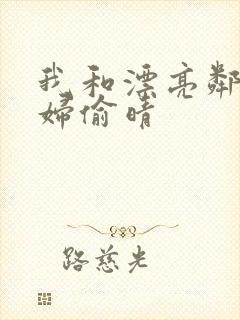 我和漂亮鄰
婦偷晴
路慈光